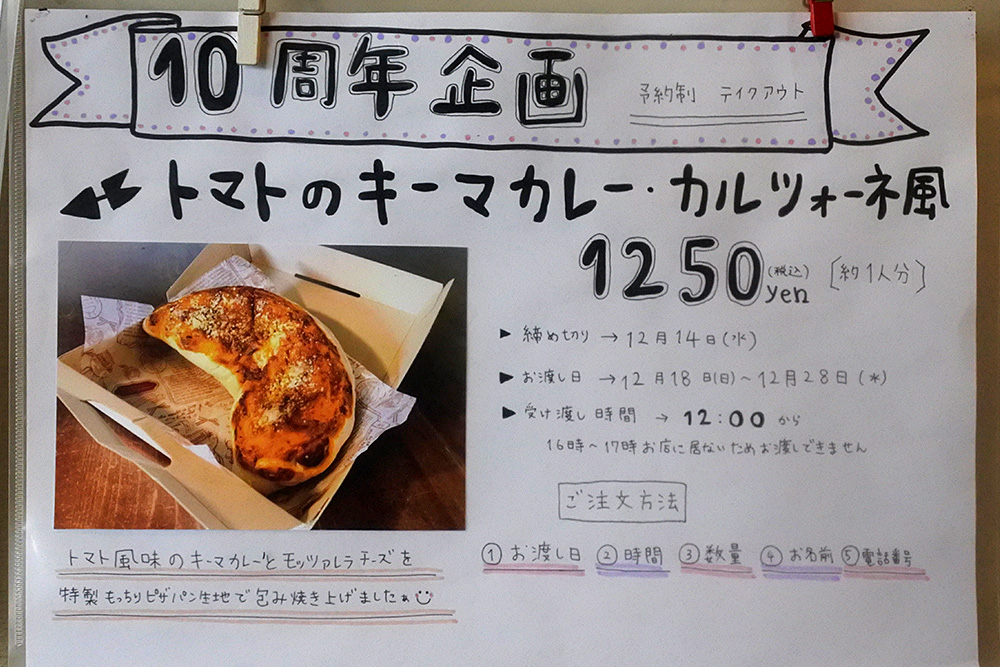 10周年企画 予約制 テイクアウト
トマトのキーマカレー・カルツォーネ風
1250yen (税込) [約1人分]
▶ 締め切り → 12月14日(水)
▶ お渡し日 → 12月18日(日)〜12月28日(水)
▶ 受け渡し時間 → 12:00から
16時〜17時お店に居ないためお渡しできません
ご注文方法
① お渡し日 ② 時間 ③ 数量 ④ お名前 ⑤ 電話番号
トマト風味のキーマカレーとモッツァレラチーズを
特製もっちりピザパン生地で包み焼き上げました